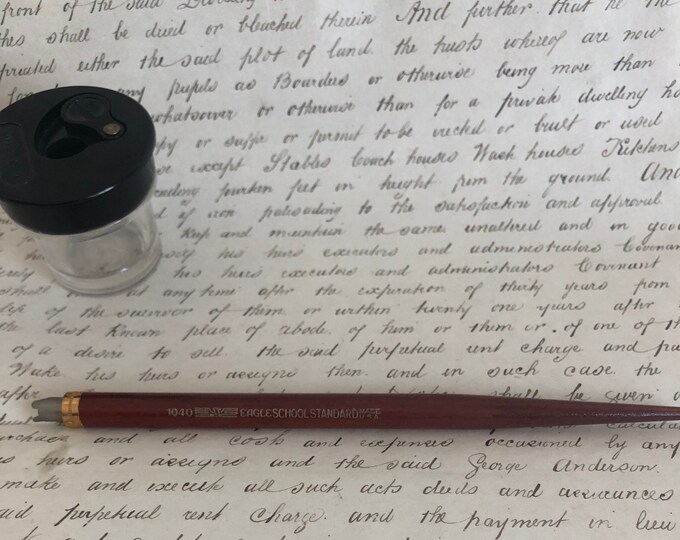 front of the said
shall be dued or bleached therein And further that he the
either the said plot of land, the trusts whereof are now
any pupils as Bourders or otherwise being more than
whatsoever or otherwise than for a private dwelling
or suffer or permit to be erected or built or used
except Stables Coach houses Wash houses Kitchens
fourteen feet in height from the ground. And
of iron palesading to the satisfaction and approval
keep and maintain the same unaltered and in good
his heirs executors and administrators Covenant
his heirs executors and administrators Covenant
shall at any time after the expiration of thirty years from
of the survivor of them or within twenty one years after
the last known place of abode of him or them or of one of
of a desire to sell the said perpetual rent charge and
Wake his heirs or assigns then and in such case the
after shall be given
1040 EAGLE SCHOOL STANDARD
and all costs and expenses occasioned by any
heirs or assigns and the said George Anderson
make and execute all such acts deeds and assurances
said perpetual rent charge and the payment in lieu